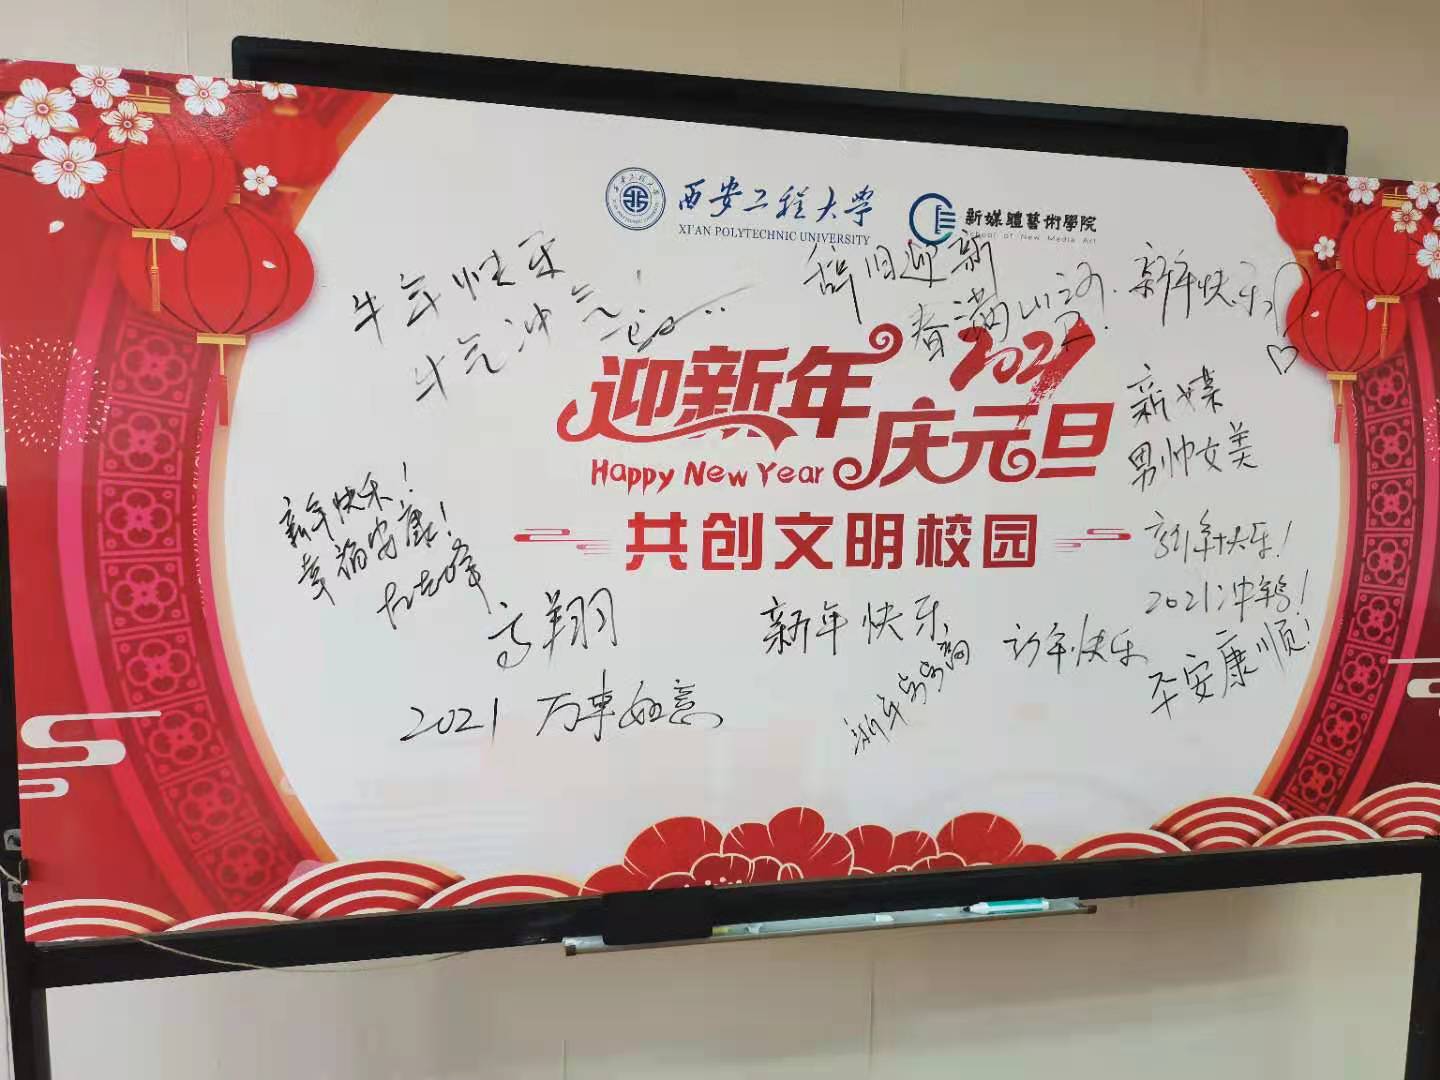 西安工程大学
XI'AN POLYTECHNIC UNIVERSITY
新媒體藝術學院
School of New Media Art
牛年快乐
牛气冲
辞旧迎新
春满山河
新年快乐
2021
迎新年
庆元旦
Happy New Year
共创文明校园
新媒
男帅女美
新年快乐!
幸福安康!
新年快乐!
2021冲鸭!
平安康顺!
高翔
新年快乐
新年快乐
2021 万事如意